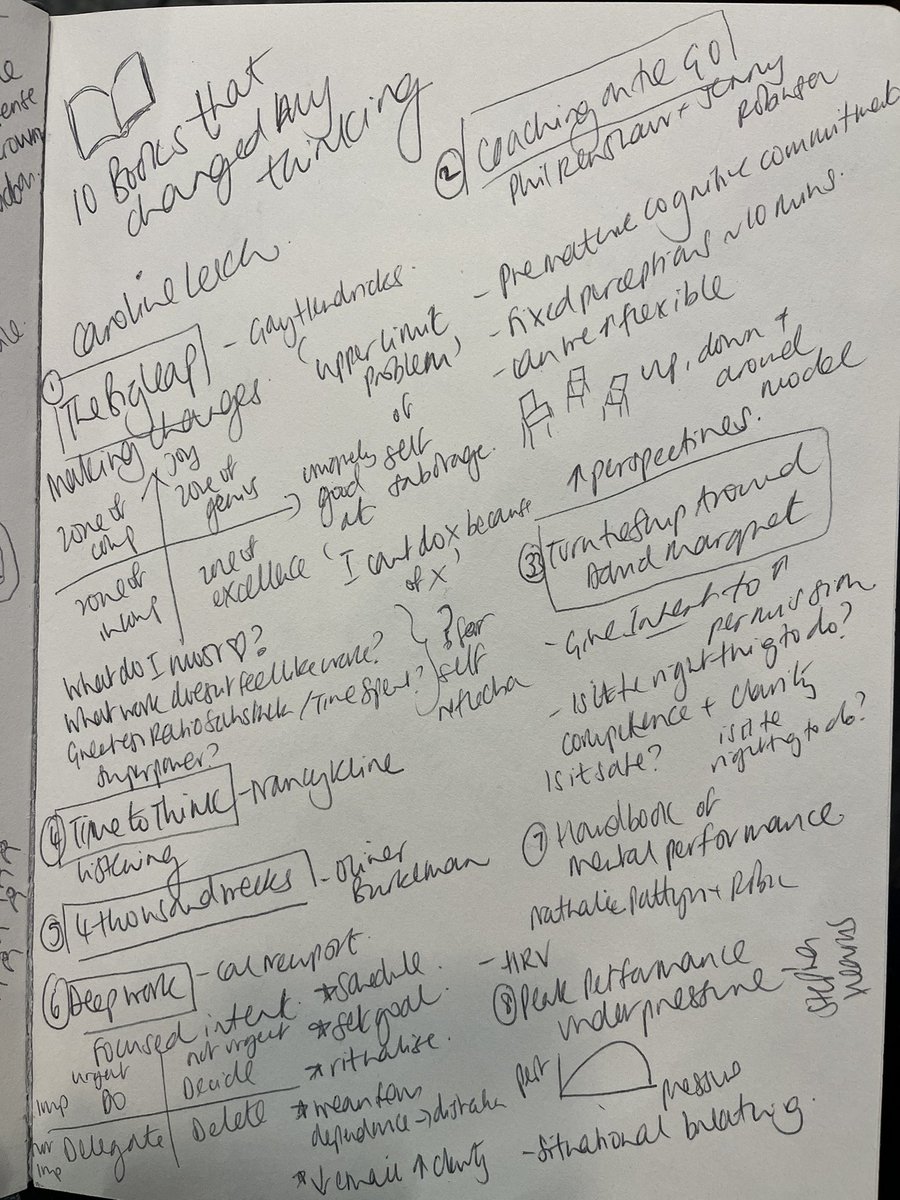 10 Books that
changed my
thinking
Caroline Leech
① The Big Leap - Gay Hendricks.
making changes. 'upper limit
problem'
joy
zone of
comp
zone of
genius
uniquely
good
at
of
self
sabotage.
zone of
incomp
zone of
excellence
'I cant do x because
of x'
What do I most ♡?
What work doesnt feel like work?
Greatest Ratio Satisfaction / Time Spent?
Superpower?
? for
self
reflection
② Coaching on the Go
Phil Renshaw + Jenny
Robinson
- Premature cognitive commitment
- fixed perceptions ~10 mins.
- can we ↑ flexible
up, down +
around
model
↑ perspectives.
③ Turn the ship Around
David Marquet
- Give Intent to ↑
permission
- Is it the right thing to do?
competence + clarity
Is it safe?
is it the
right thing to do?
④ Time to Think - Nancy Kline
listening
⑤ 4 thousand weeks - Oliver
Burkeman
⑥ Deep work - Cal Newport.
Focused intent.
urgent
not urgent
imp
DO
Decide
not
imp
Delegate
Delete
* Schedule.
* set goal.
* ritualise.
* wean from
dependence → distraction
* ↓ email ↑ clarity
⑦ Handbook of
mental performance
Nathalie Pattyn +
- HRV
⑧ Peak Performance
under pressure
Stephen
Hearns
perf
pressure
- situational breathing.